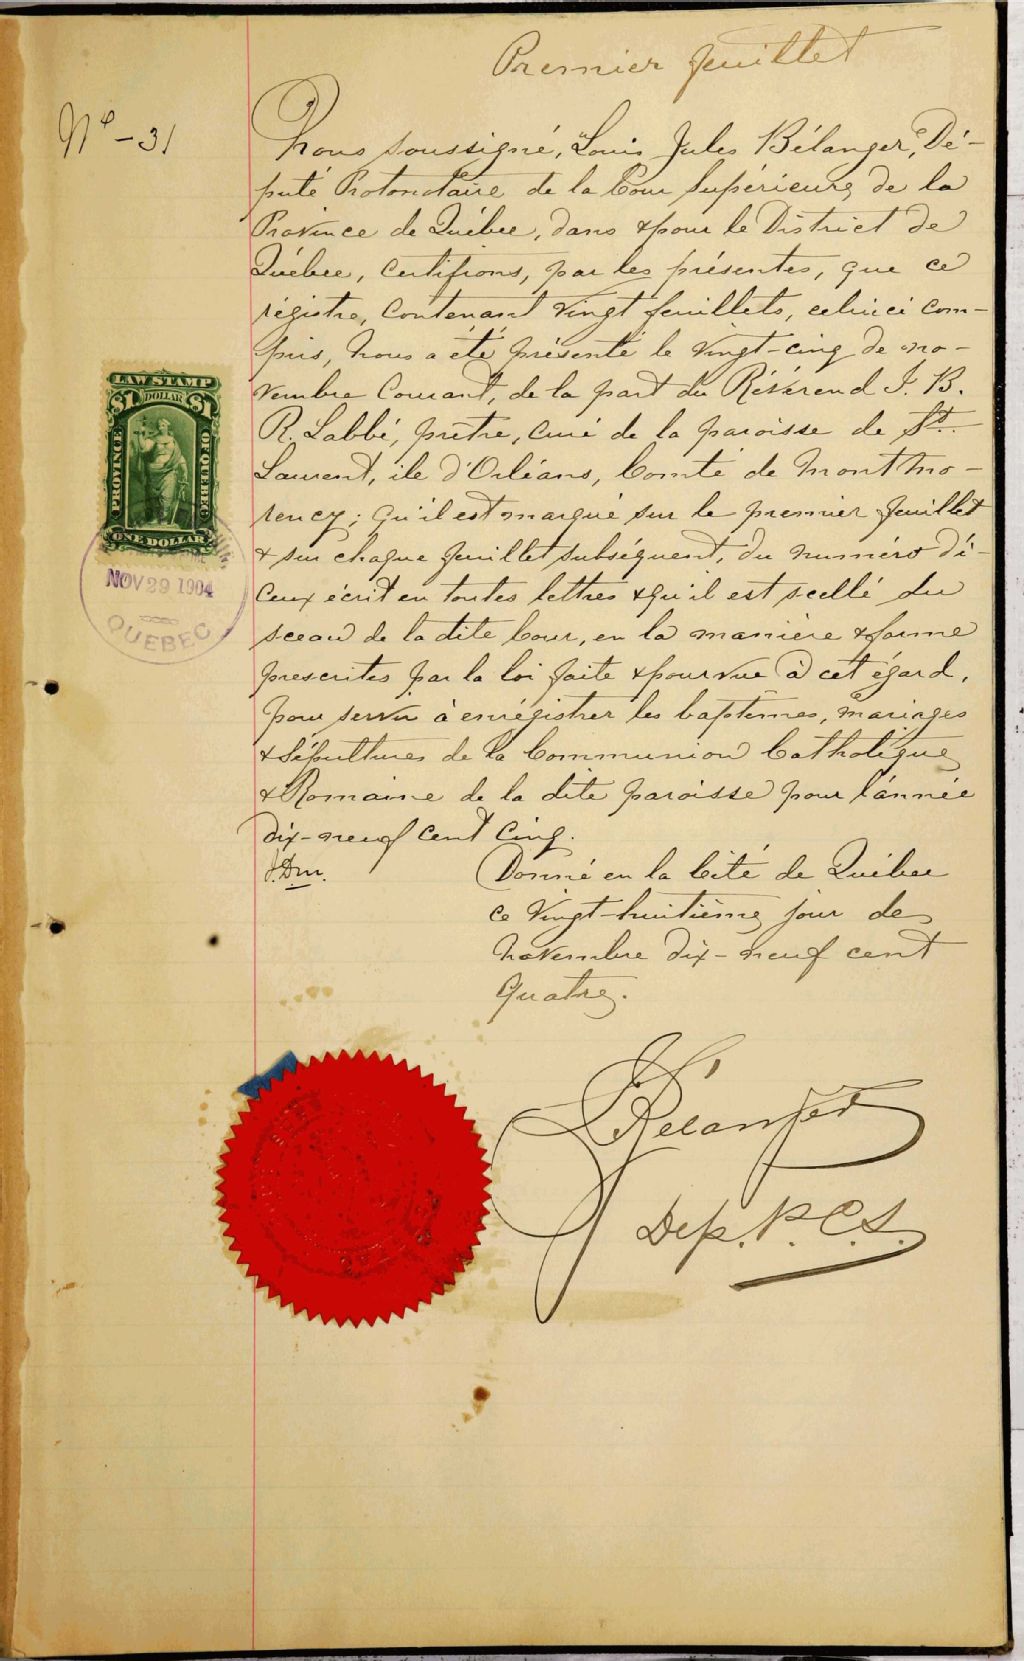 Premier feuillet
No - 31
Nous soussigné, Louis Jules Bélanger, Dé-
puté Protonotaire de la Cour Supérieure de la
Province de Québec, dans & pour le District de
Québec, certifions, par les présentes, que ce
régistre, contenant vingt feuillets, celui ci com-
pris, nous a été présenté le vingt-cinq de no-
vembre courant, de la part du Révérend J. B.
R. Labbé, prêtre, curé de la paroisse de St.
Laurent, ile d'Orléans, Comté de Montmo-
rency; qu'il est marqué sur le premier feuillet
& sur chaque feuillet subséquent, du numéro d'i-
ceux écrit en toutes lettres & qu'il est scellé du
sceau de la dite Cour, en la manière & forme
prescrites par la loi faite & pourvue à cet égard,
pour servir à enrégistrer les baptêmes, mariages
& sépultures de la Communion Catholique
& Romaine de la dite paroisse pour l'année
dix-neuf cent cinq.
J.Dm.
Donné en la Cité de Québec
ce vingt-huitième jour de
novembre dix-neuf cent
quatre.
LJBélanger
Dep. P. C. S.
LAW STAMP
$1 DOLLAR $1
PROVINCE
OF QUEBEC
ONE DOLLAR
NOV 29 1904
QUEBEC